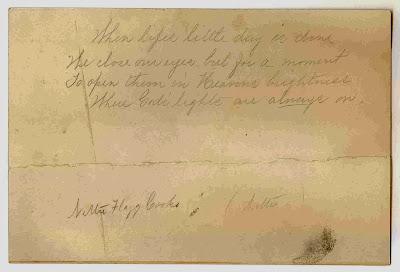 When life's little day is done
We close our eyes but for a moment
To open them in Heavens brightness
Where Gods lights are always on.
Nettie Flagg Cooke